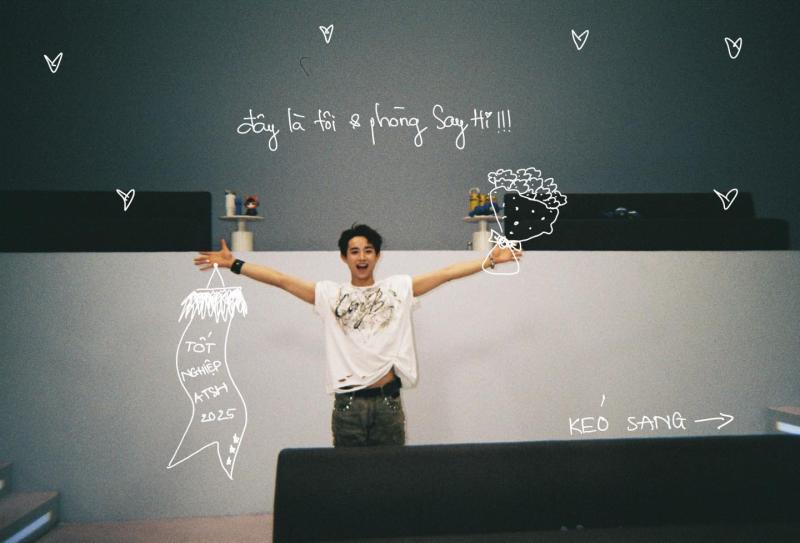 đây là tôi & phòng Say Hi!!!
TỐT
NGHIỆP
ATSH
2025
KÉO SANG →